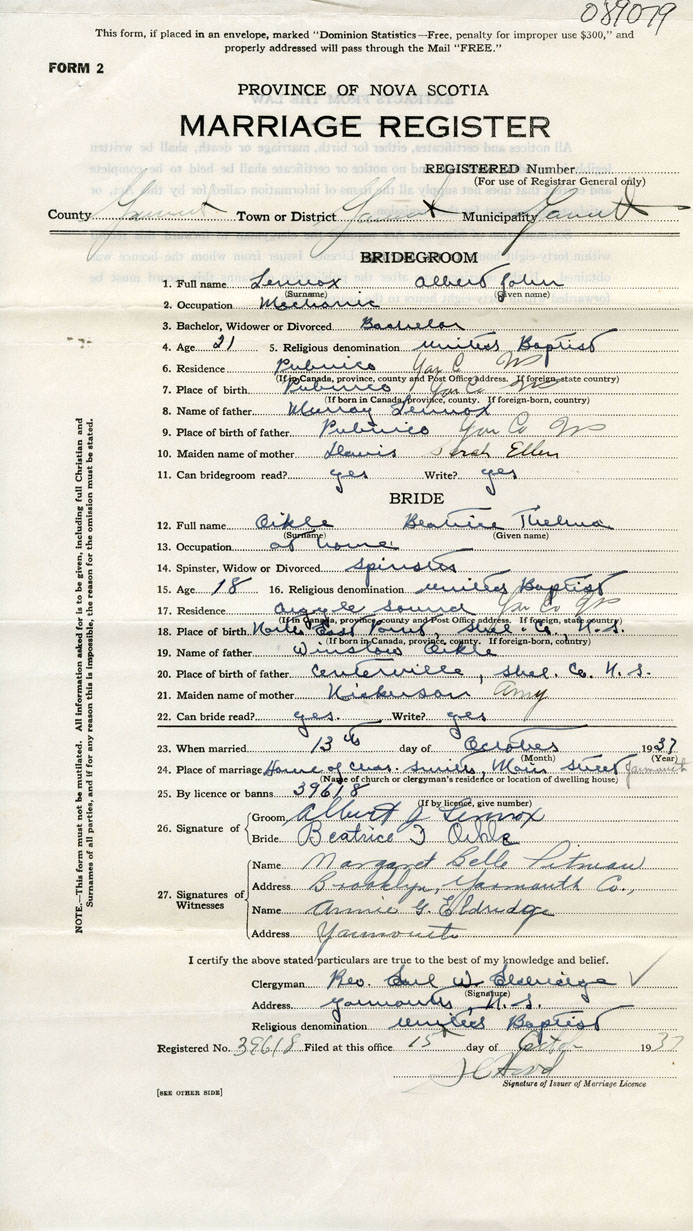 089079
This form, if placed in an envelope, marked "Dominion Statistics—Free, penalty for improper use $300," and
properly addressed will pass through the Mail "FREE."
FORM 2
PROVINCE OF NOVA SCOTIA
MARRIAGE REGISTER
REGISTERED Number
(For use of Registrar General only)
County Yarmouth Town or District Yarmouth Municipality Yarmouth
BRIDEGROOM
1. Full name Lennox Albert John
(Surname) (Given name)
2. Occupation Mechanic
3. Bachelor, Widower or Divorced Bachelor
4. Age 21 5. Religious denomination United Baptist
6. Residence Pubnico Yar Co NS
(If in Canada, province, county and Post Office address. If foreign, state country)
7. Place of birth Pubnico Yar Co NS
(If born in Canada, province, county. If foreign-born, country)
8. Name of father Murray Lennox
9. Place of birth of father Pubnico Yar Co NS
10. Maiden name of mother Davis Sarah Ellen
11. Can bridegroom read? yes Write? yes
BRIDE
12. Full name Oikle Beatrice Thelma
(Surname) (Given name)
13. Occupation at home
14. Spinster, Widow or Divorced Spinster
15. Age 18 16. Religious denomination United Baptist
17. Residence Argyle Sound Yar Co NS
(If in Canada, province, county and Post Office address. If foreign, state country)
18. Place of birth North East Point, Shel. Co. N.S.
(If born in Canada, province, county. If foreign-born, country)
19. Name of father Winslow Oikle
20. Place of birth of father Centerville, Shel. Co. N.S.
21. Maiden name of mother Nickerson Amy
22. Can bride read? yes. Write? yes
23. When married 13th day of October 1937
(Month) (Year)
24. Place of marriage Home of Chas. Smith, Main Street Yarmouth
(Name of church or clergyman's residence or location of dwelling house)
25. By licence or banns 39618
(If by licence, give number)
26. Signature of Groom Albert J Lennox
Bride Beatrice T Oikle
27. Signatures of Witnesses
Name Margaret Belle Pitman
Address Brooklyn, Yarmouth Co.,
Name Annie G. Eldridge
Address Yarmouth
I certify the above stated particulars are true to the best of my knowledge and belief.
Clergyman Rev. Earl W. Eldridge
(Signature)
Address Yarmouth, N.S.
Religious denomination United Baptist
Registered No. 39618 Filed at this office 15 day of Octr 1937
Signature of Issuer of Marriage Licence
[SEE OTHER SIDE]
NOTE.—This form must not be mutilated. All information asked for is to be given, including full Christian and
Surnames of all parties, and if for any reason this is impossible, the reason for the omission must be stated.